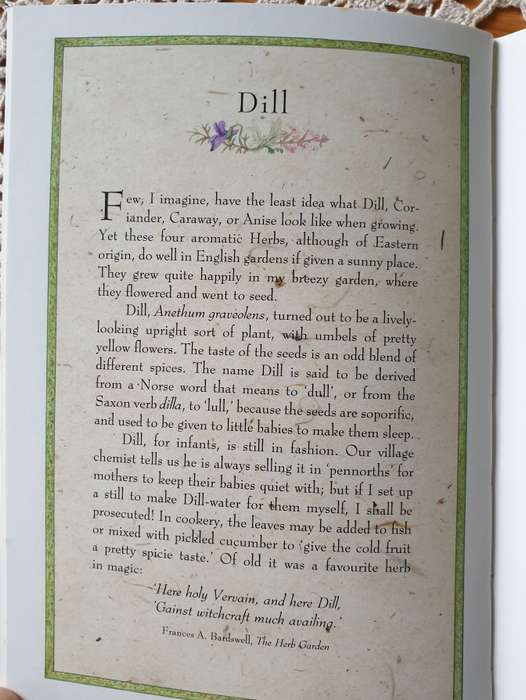 Dill
Few, I imagine, have the least idea what Dill, Cor-
iander, Caraway, or Anise look like when growing.
Yet these four aromatic Herbs, although of Eastern
origin, do well in English gardens if given a sunny place.
They grew quite happily in my breezy garden, where
they flowered and went to seed.
Dill, Anethum graveolens, turned out to be a lively-
looking upright sort of plant, with umbels of pretty
yellow flowers. The taste of the seeds is an odd blend of
different spices. The name Dill is said to be derived
from a Norse word that means to 'dull', or from the
Saxon verb dilla, to 'lull,' because the seeds are soporific,
and used to be given to little babies to make them sleep.
Dill, for infants, is still in fashion. Our village
chemist tells us he is always selling it in 'pennorths' for
mothers to keep their babies quiet with; but if I set up
a still to make Dill-water for them myself, I shall be
prosecuted! In cookery, the leaves may be added to fish
or mixed with pickled cucumber to 'give the cold fruit
a pretty spicie taste.' Of old it was a favourite herb
in magic:
'Here holy Vervain, and here Dill,
'Gainst witchcraft much availing.'
Frances A. Bardswell, The Herb Garden